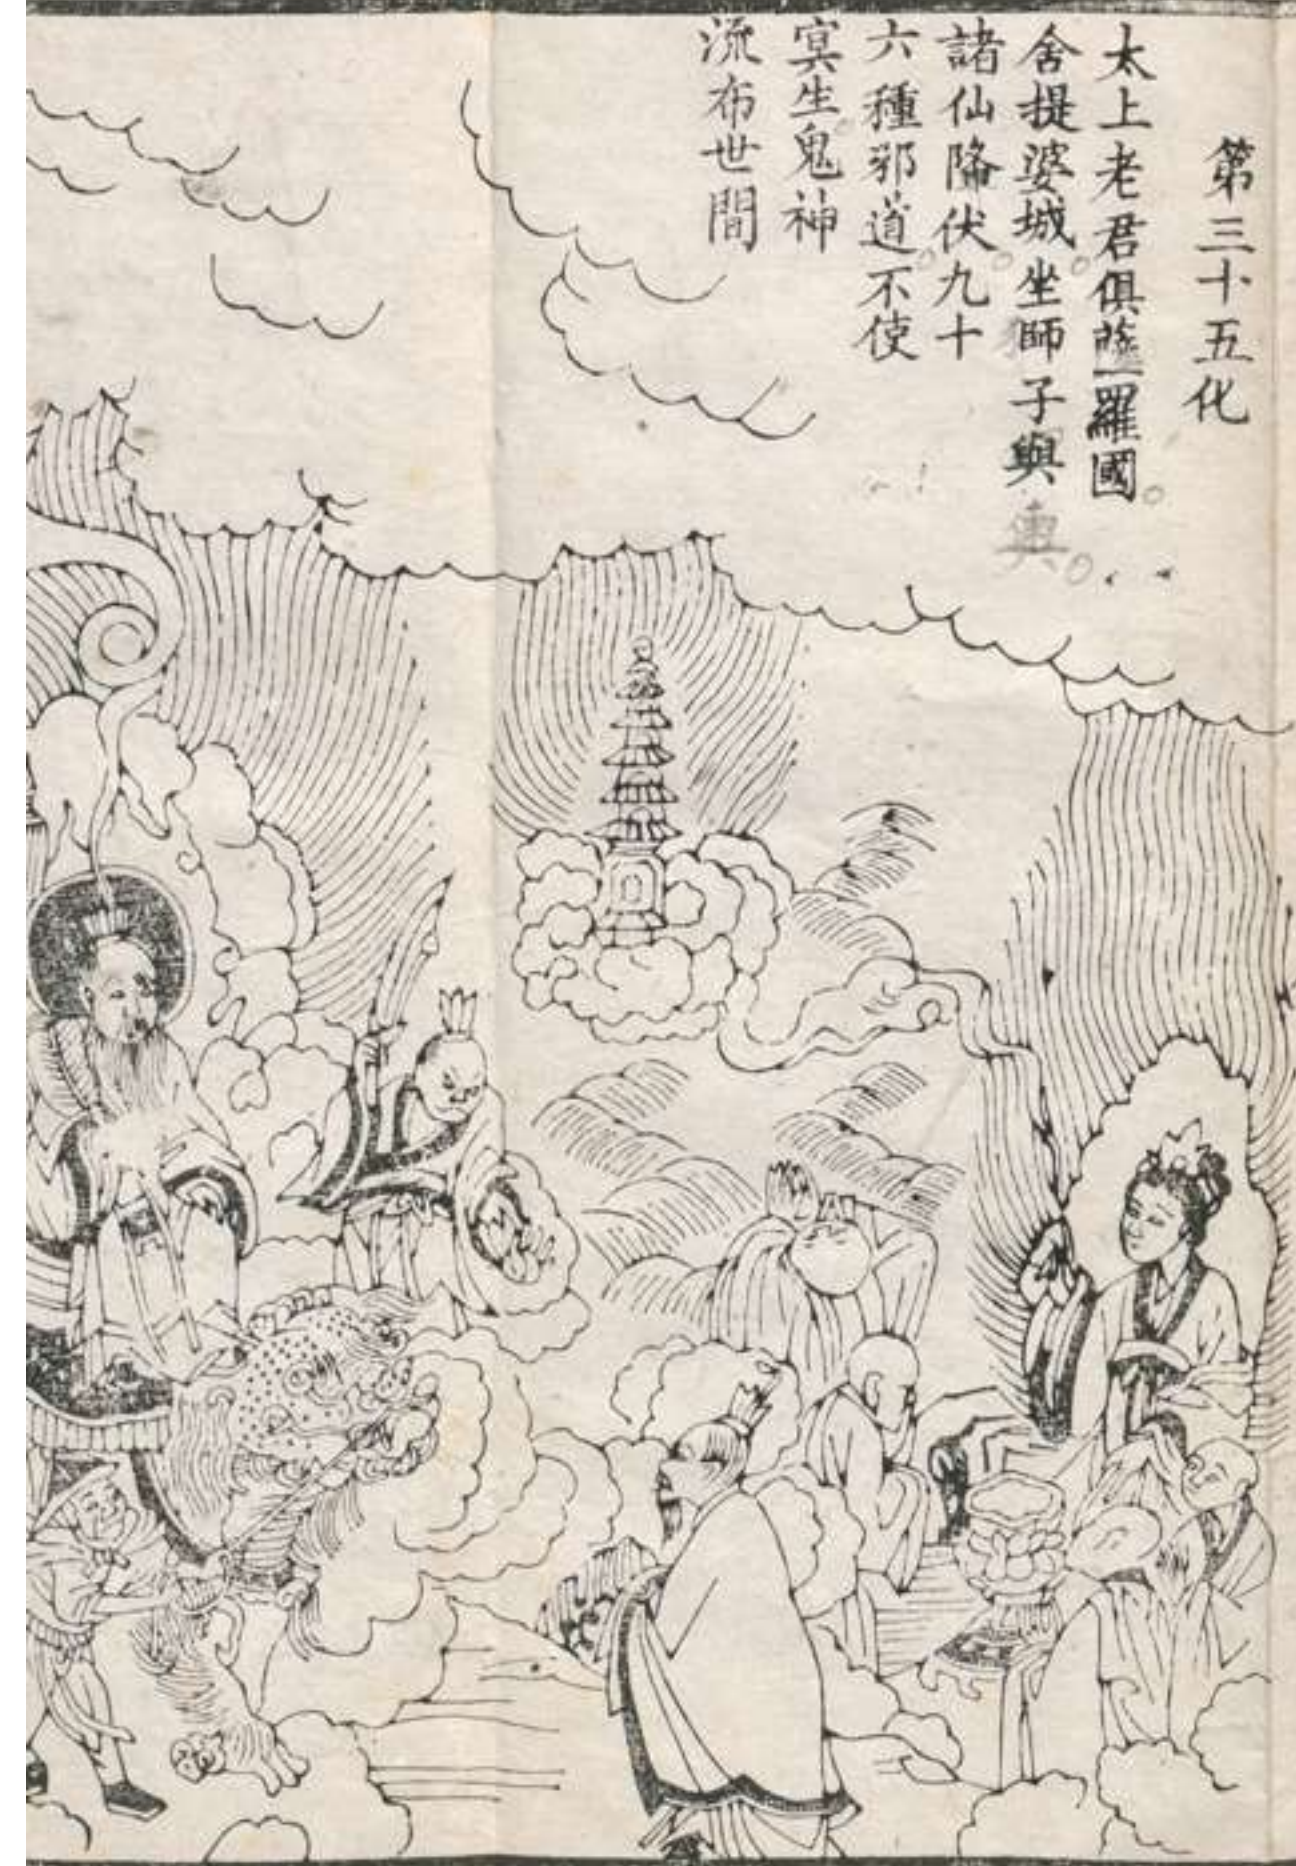 第三十五化
太上老君俱薩羅國
舍提婆城坐師子輿輿
諸仙降伏九十
六種邪道不使
冥生鬼神
流布世間